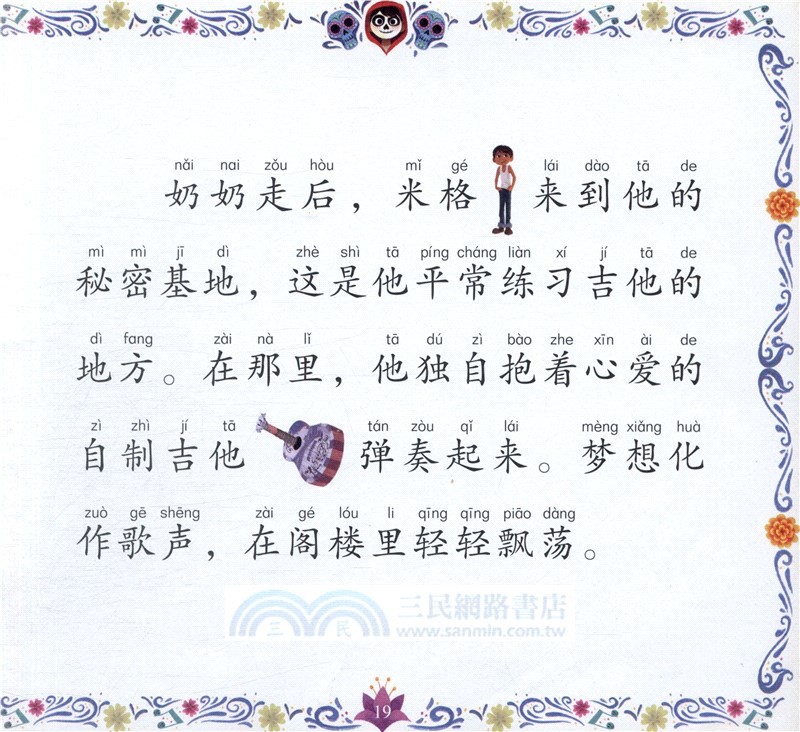 nǎi nai zǒu hòu mǐ gé lái dào tā de
奶奶走后，米格来到他的
mì mì jī dì zhè shì tā píng cháng liàn xí jí tā de
秘密基地，这是他平常练习吉他的
dì fang zài nà lǐ tā dú zì bào zhe xīn ài de
地方。在那里，他独自抱着心爱的
zì zhì jí tā tán zòu qǐ lái mèng xiǎng huà
自制吉他弹奏起来。梦想化
zuò gē shēng zài gé lóu li qīng qīng piāo dàng
作歌声，在阁楼里轻轻飘荡。
三民 三民網路書店
www.sanmin.com.tw
19